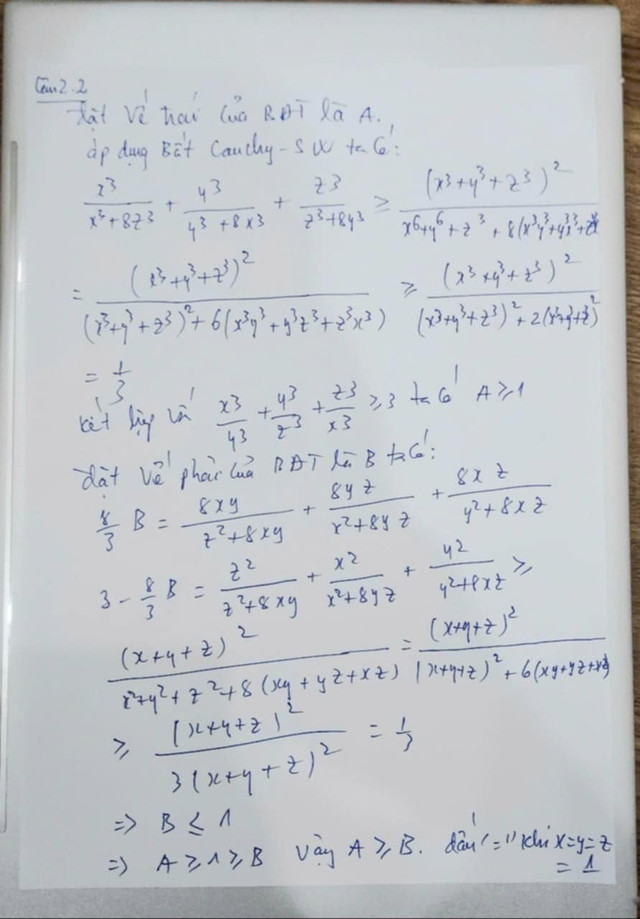 Câu 2.2
Đặt vế trái của BĐT là A.
áp dụng Bất Cauchy-SW ta có:
x³/(x³+8z³) + y³/(y³+8x³) + z³/(z³+8y³) ≥ (x³+y³+z³)²/(x⁶+y⁶+z³+8(x³y³+y³z³+z³
= (x³+y³+z³)²/((x³+y³+z³)²+6(x³y³+y³z³+z³x³)) ≥ (x³+y³+z³)²/((x³+y³+z³)²+2(x³+y³+z³)²)
= 1/3
kết hợp với x³/y³ + y³/z³ + z³/x³ ≥ 3 ta có A ≥ 1
Đặt vế phải của BĐT là B ta có:
8/3 B = 8xy/(z²+8xy) + 8yz/(x²+8yz) + 8xz/(y²+8xz)
3 - 8/3 B = z²/(z²+8xy) + x²/(x²+8yz) + y²/(y²+8xz) ≥
(x+y+z)²/(x²+y²+z²+8(xy+yz+xz)) = (x+y+z)²/((x+y+z)²+6(xy+yz+xz))
≥ (x+y+z)²/(3(x+y+z)²) = 1/3
=> B ≤ 1
=> A ≥ 1 ≥ B vậy A ≥ B. dấu "=" khi x=y=z
= 1